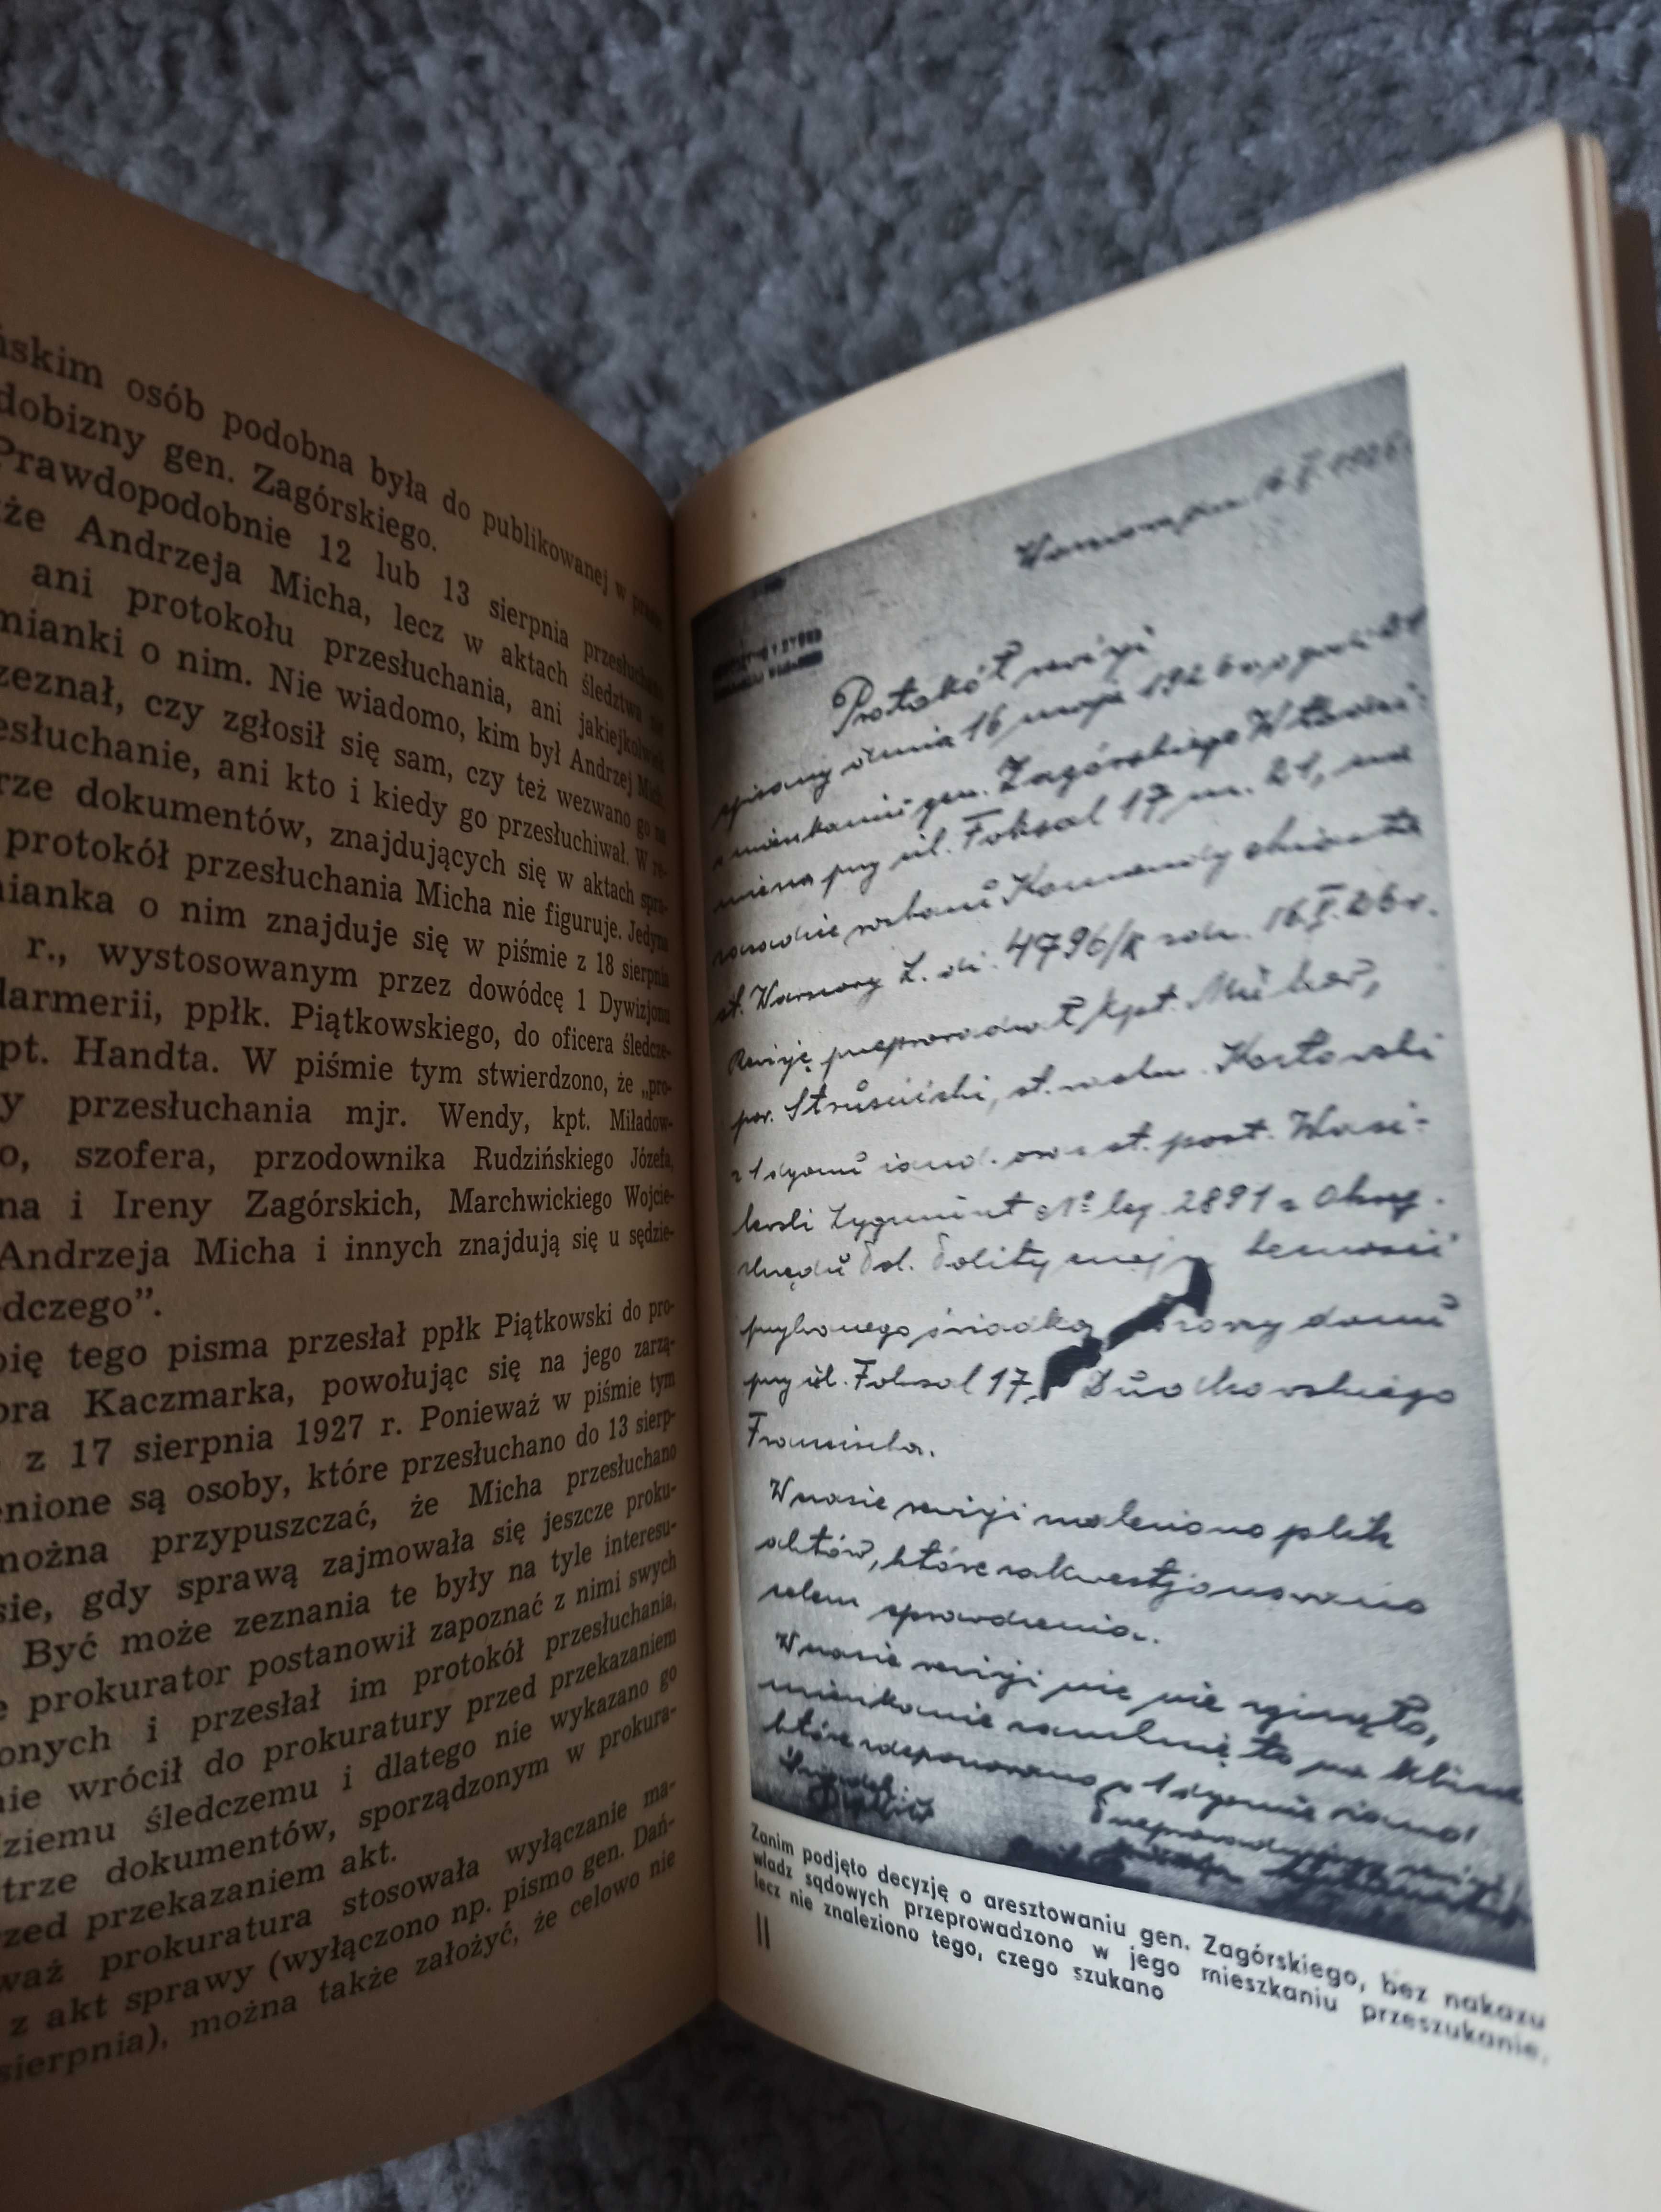 ńskim osób podobna była do publikowanej w prasie
dobizny gen. Zagórskiego.
Prawdopodobnie 12 lub 13 sierpnia przesłuchano
że Andrzeja Micha, lecz w aktach śledztwa nie
ani protokołu przesłuchania, ani jakiejkolwiek
mianki o nim. Nie wiadomo, kim był Andrzej Mich,
zeznał, czy zgłosił się sam, czy też wezwano go na
esłuchanie, ani kto i kiedy go przesłuchiwał. W re-
rze dokumentów, znajdujących się w aktach spra-
protokół przesłuchania Micha nie figuruje. Jedyna
mianka o nim znajduje się w piśmie z 18 sierpnia
r., wystosowanym przez dowódcę 1 Dywizjonu
darmerii, ppłk. Piątkowskiego, do oficera śledcze-
pt. Handta. W piśmie tym stwierdzono, że „pro-
y przesłuchania mjr. Wendy, kpt. Miładow-
o, szofera, przodownika Rudzińskiego Józefa,
na i Ireny Zagórskich, Marchwickiego Wojcie-
Andrzeja Micha i innych znajdują się u sędzie-
dczego”.
pię tego pisma przesłał ppłk Piątkowski do pro-
ora Kaczmarka, powołując się na jego zarzą-
z 17 sierpnia 1927 r. Ponieważ w piśmie tym
enione są osoby, które przesłuchano do 13 sierp-
można przypuszczać, że Micha przesłuchano
sie, gdy sprawą zajmowała się jeszcze proku-
Być może zeznania te były na tyle interesu-
e prokurator postanowił zapoznać z nimi swych
onych i przesłał im protokół przesłuchania,
nie wrócił do prokuratury przed przekazaniem
dziemu śledczemu i dlatego nie wykazano go
trze dokumentów, sporządzonym w prokura-
rzed przekazaniem akt.
waż prokuratura stosowała wyłączanie ma-
z akt sprawy (wyłączono np. pismo gen. Dań-
sierpnia), można także założyć, że celowo nie
Protokół rewizji
spisany dnia 16 maja 1926
w mieszkaniu gen. Zagórskiego Włodzi-
mierza przy ul. Foksal 17 m. 21, na
zasadzie rozkazu Komendy miasta
st. Warszawy L. dz. 4796/K z dn. 16.V.26 r.
Rewizję przeprowadzał kpt.
por. Strusiński, st. wachm. Kozłowski
z 1 dyonu żand. oraz st. post. Wasi-
lewski Zygmunt № leg. 2891 z Okręg.
Urzędu Pol. Politycznej w
przybranego świadka dozorcy domu
przy ul. Foksal 17,
Franciszka.
W czasie rewizji znaleziono plik
aktów, które zakwestjonowano
celem sprawdzenia.
W czasie rewizji nic nie zginęło,
mieszkanie zamknięto na klucz
które zdeponowano w 1 dyonie
Zanim podjęto decyzję o aresztowaniu gen. Zagórskiego, bez nakazu
władz sądowych przeprowadzono w jego mieszkaniu przeszukanie,
lecz nie znaleziono tego, czego szukano
II